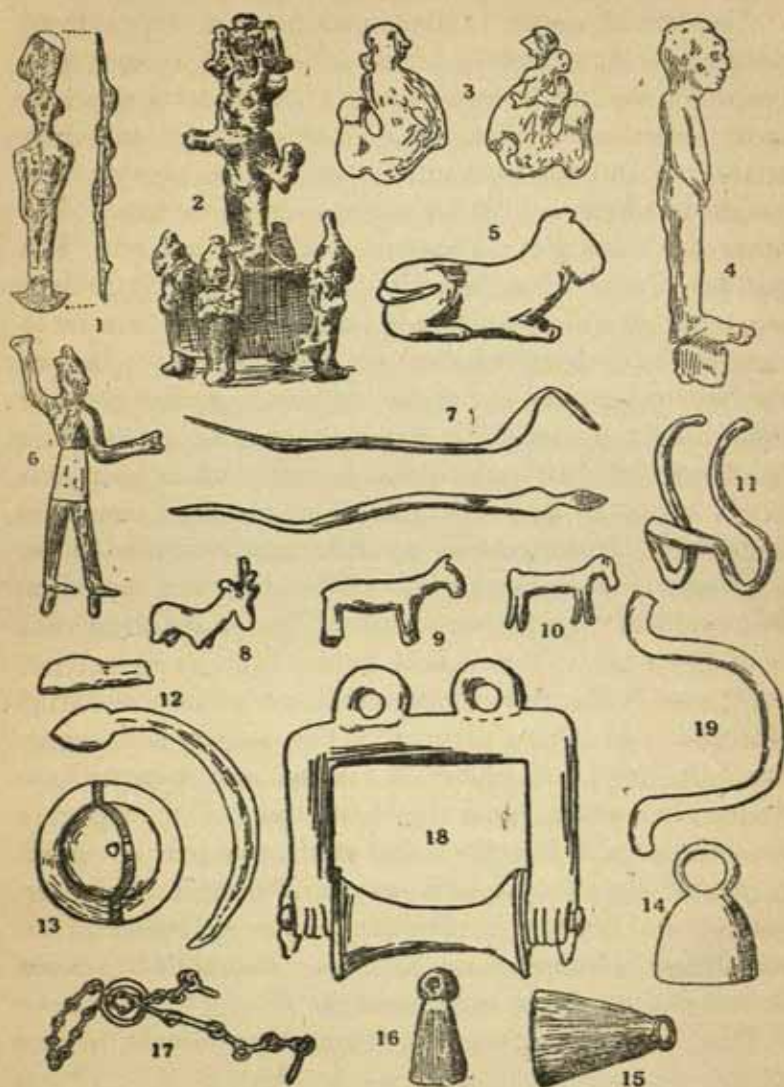 1
2
3
4
5
6
7
8
9
10
11
12
13
14
15
16
17
18
19